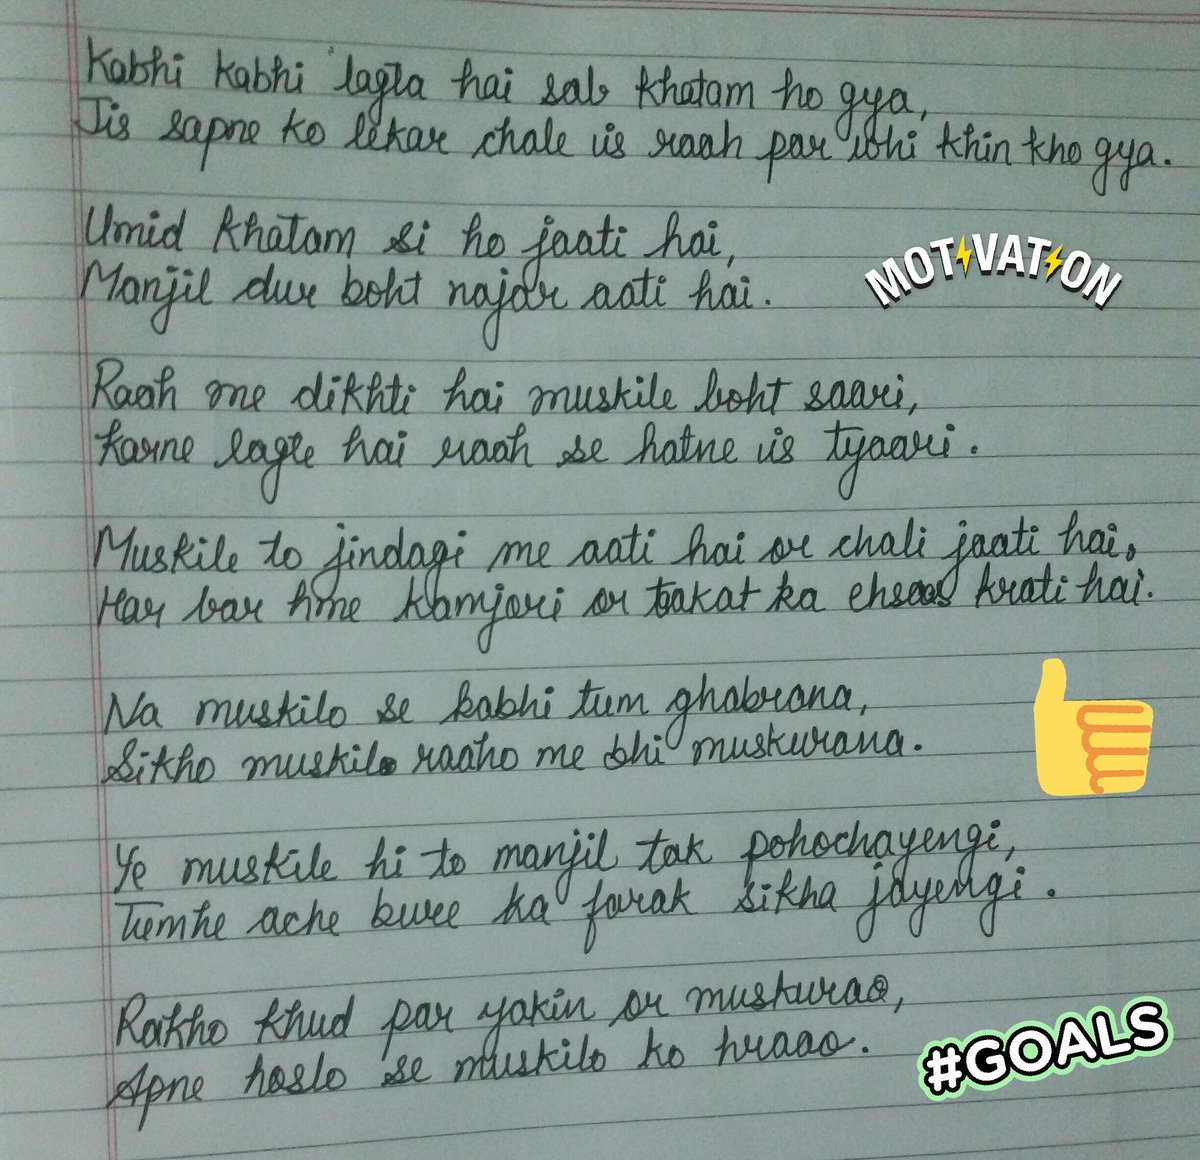 Kabhi kabhi lagta hai sab khatam ho gya,
Jis sapne ko lekar chale us raah par wohi khin kho gya.
Umid khatam si ho jaati hai,
Manjil dur boht najar aati hai.
MOTIVATION
Raah me dikhti hai muskile boht saari,
Karne lagte hai raah se hatne us tyaari.
Muskile to jindagi me aati hai or chali jaati hai,
Har bar hme kamjori or taakat ka ehsaas krati hai.
Na muskilo se kabhi tum ghabrana,
Sikho muskilo raaho me bhi muskurana.
Ye muskile hi to manjil tak pohochayengi,
Tumhe ache buree ka farak sikha jayengi.
Rakho khud par yakin or muskurao,
Apne hoslo se muskilo ko hraao.
#GOALS